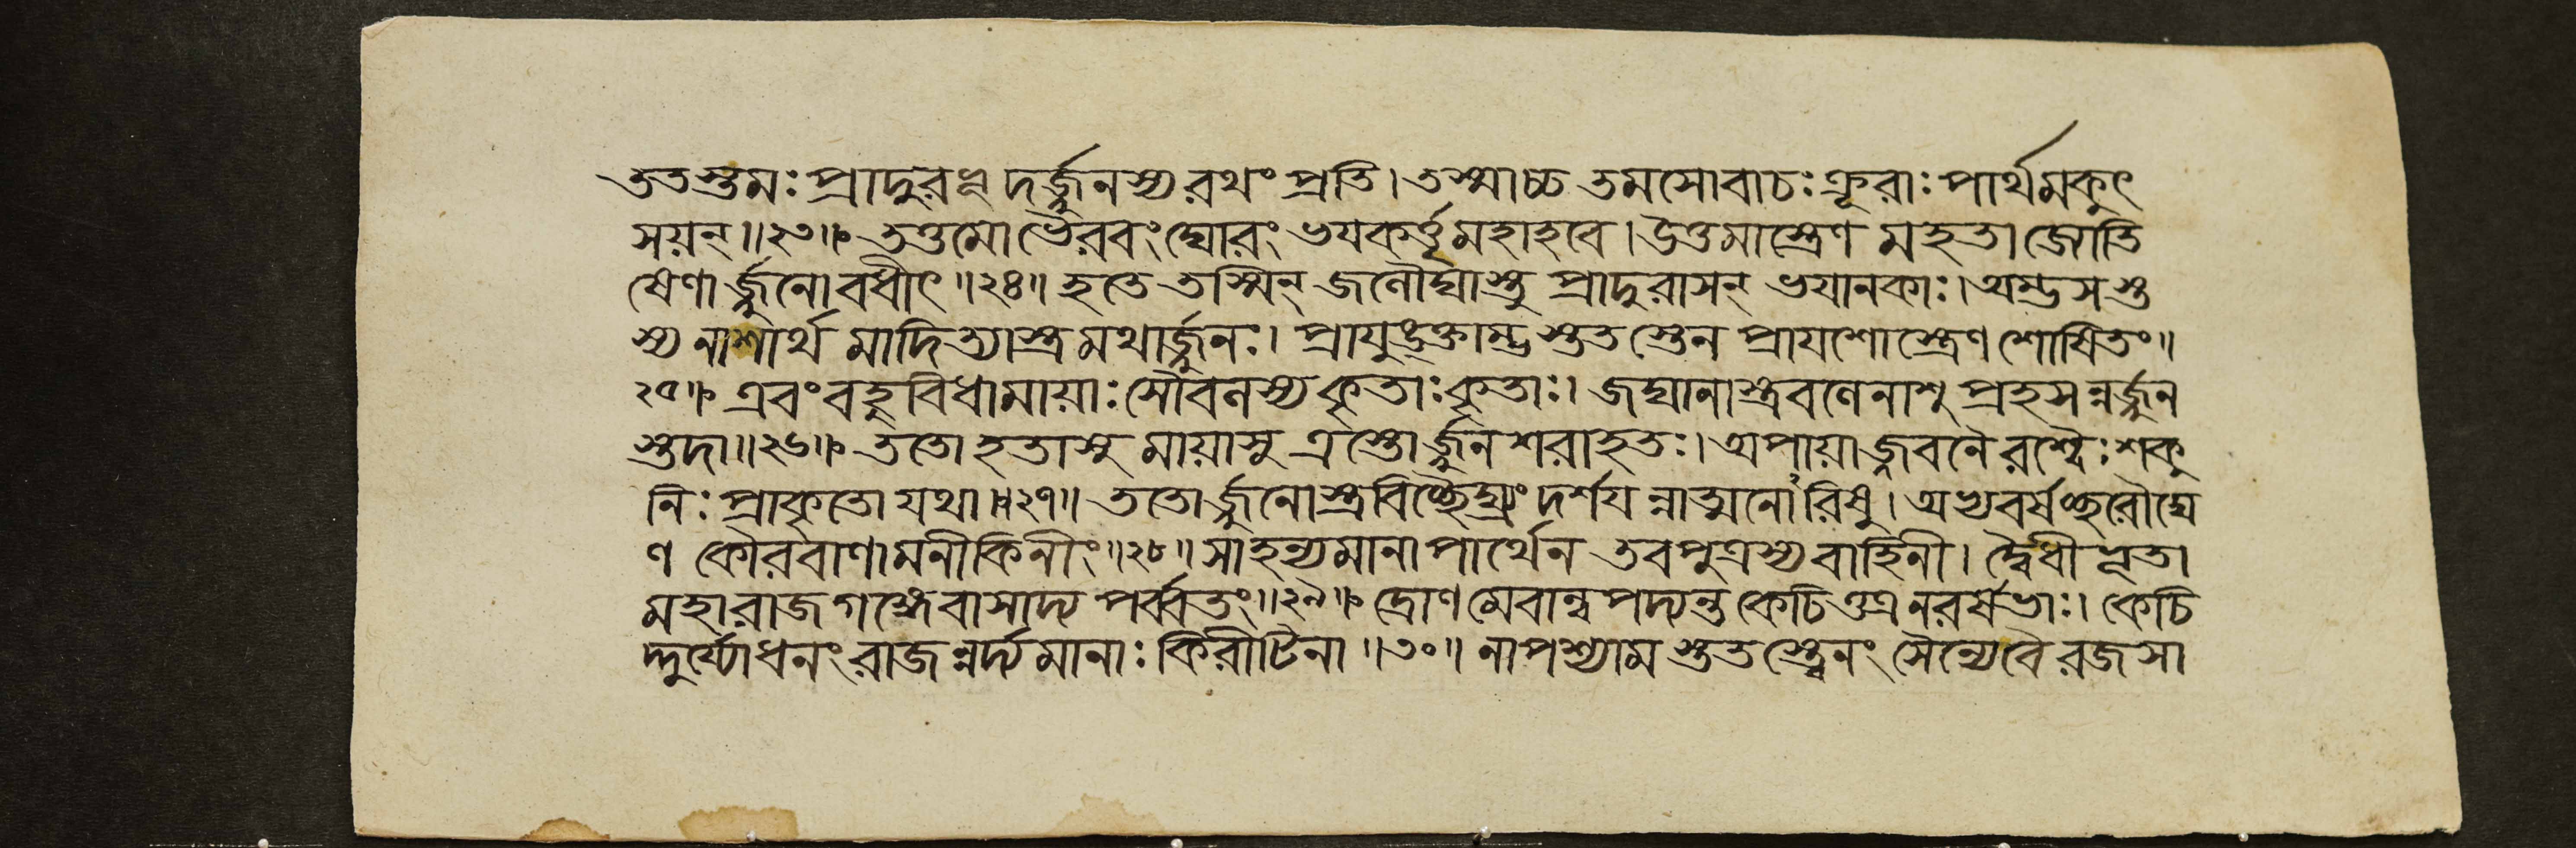 ততস্তমঃ প্রাদুরভূদর্জ্জুনস্য রথং প্রতি। তস্মাচ্চ তমসো বাচঃ ক্রূরাঃ পার্থমকুৎ
সয়ন্॥২৩॥ তত্তমো ভৈরবং ঘোরং ভয়কর্ত্তৃ মহাহবে। উত্তমাস্ত্রেণ মহতা জ্যোতি
ষেণার্জ্জুনোবধীৎ॥২৪॥ হতে তস্মিন্ জলৌঘাস্তু প্রাদুরাসন্ ভয়ানকাঃ। অম্ভসস্ত
স্য নাশার্থমাদিত্যাস্ত্রমথার্জ্জুনঃ। প্রাযুঙ্ক্তাম্ভস্ততস্তেন প্রায়শোস্ত্রেণ শোষিতং॥
২৫॥ এবং বহুবিধা মায়াঃ সৌবলস্য কৃতাঃ কৃতাঃ। জঘানাস্ত্রবলেনাশু প্রহসন্নর্জ্জুন
স্তদা॥২৬॥ ততো হতাসু মায়াসু ত্রস্তোর্জ্জুনশরাহতঃ। অপায়াজ্জবনৈরশ্বৈঃ শকু
নিঃ প্রাকৃতো যথা॥২৭॥ ততোর্জ্জুনোস্ত্রবিচ্ছৈঘ্র্যং দর্শয়ন্নাত্মনোরিষু। অভ্যবর্ষচ্ছরৌঘে
ণ কৌরবাণামনীকিনীং॥২৮॥ সা হন্যমানা পার্থেন তব পুত্রস্য বাহিনী। দ্বৈধীভূতা
মহারাজ গঙ্গেবাসাদ্য পর্ব্বতং॥২৯॥ দ্রোণমেবান্বপদ্যন্ত কেচিত্তত্র নরর্ষভাঃ। কেচি
দ্দুর্য্যোধনং রাজন্নর্দ্যমানাঃ কিরীটিনা॥৩০॥ নাপশ্যাম ততস্ত্বেনং সৈন্যে বৈ রজসা